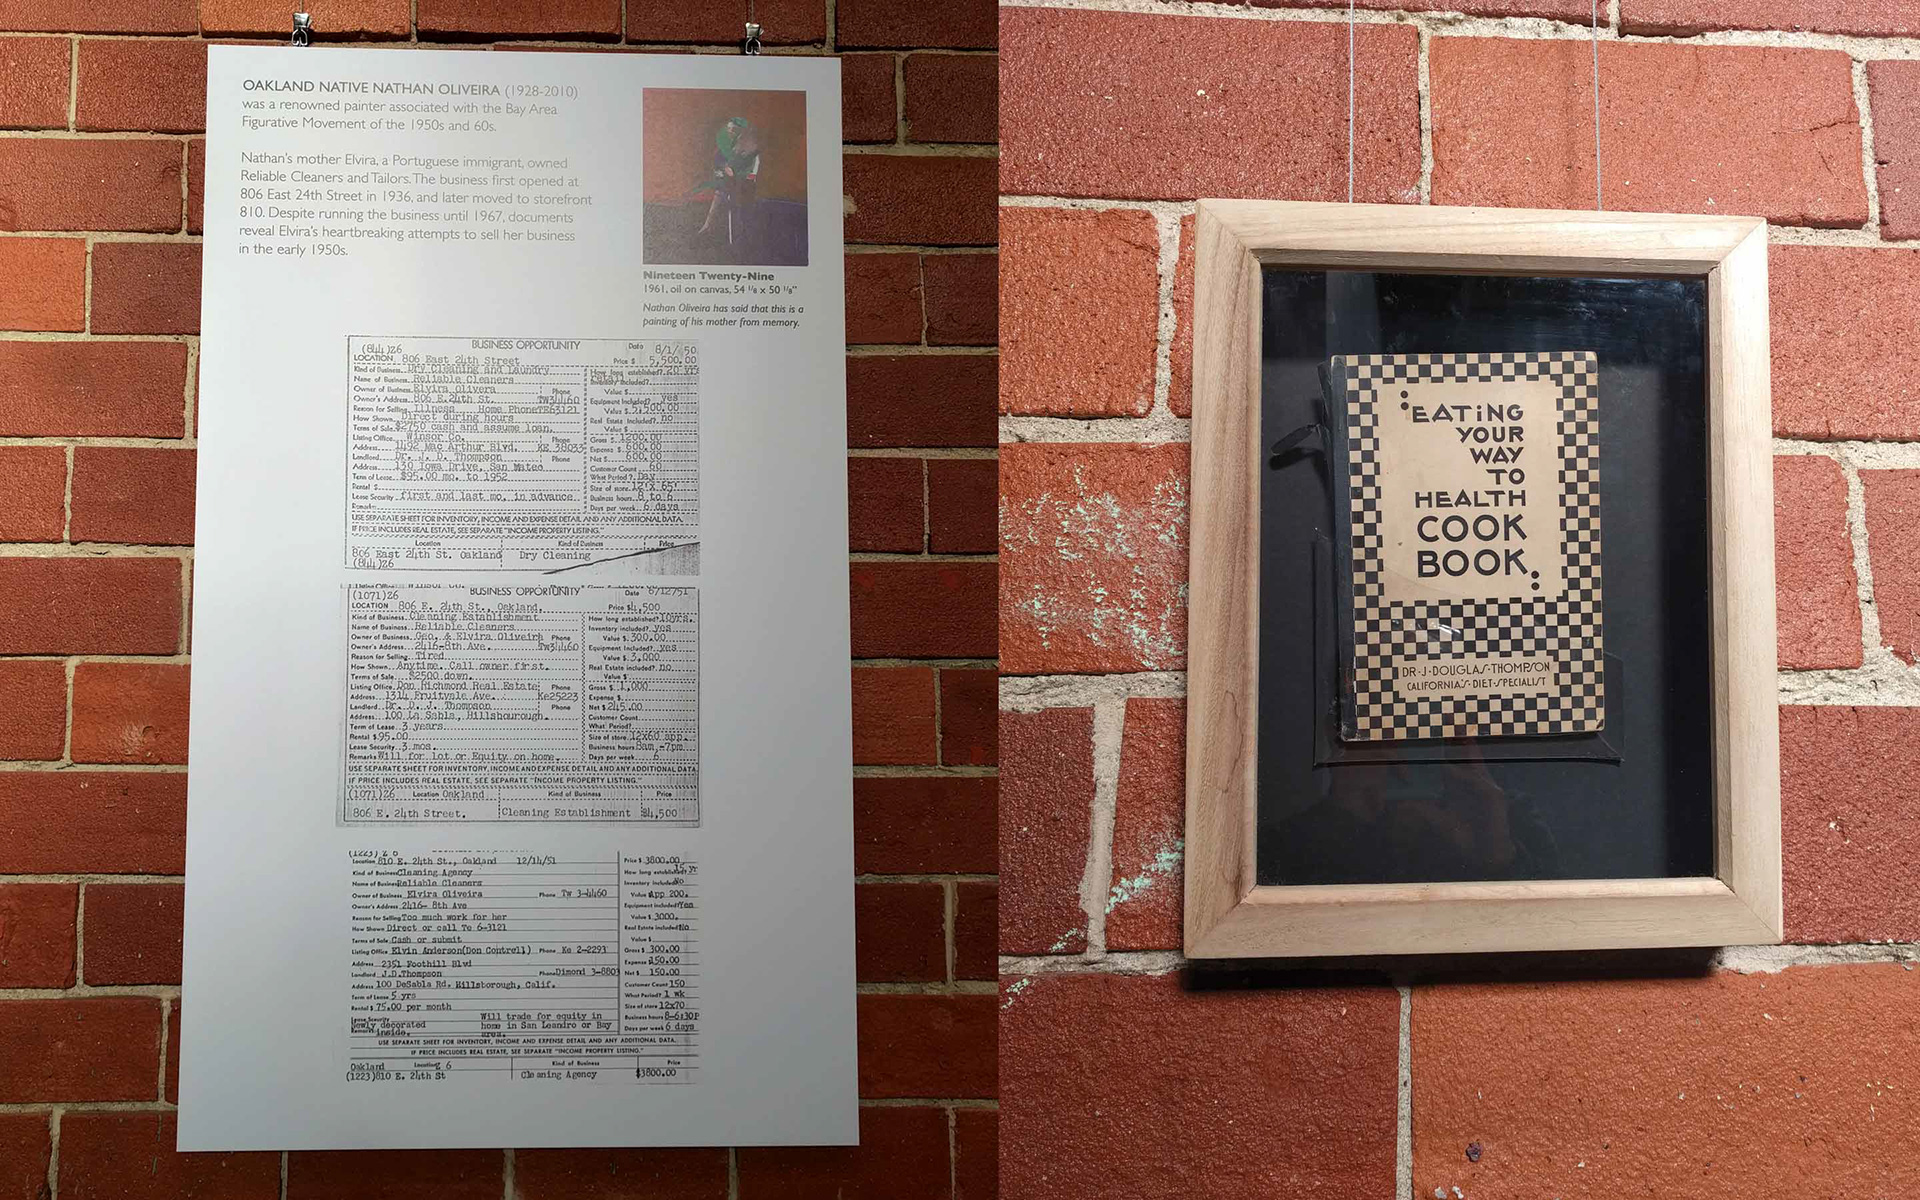 OAKLAND NATIVE NATHAN OLIVEIRA (1928-2010)
was a renowned painter associated with the Bay Area
Figurative Movement of the 1950s and 60s.
Nathan's mother Elvira, a Portuguese immigrant, owned
Reliable Cleaners and Tailors. The business first opened at
806 East 24th Street in 1936, and later moved to storefront
810. Despite running the business until 1967, documents
reveal Elvira's heartbreaking attempts to sell her business
in the early 1950s.
Nineteen Twenty-Nine
1961, oil on canvas, 54 1/8 x 50 1/8"
Nathan Oliveira has said that this is a
painting of his mother from memory.
(844)Z6 BUSINESS OPPORTUNITY Date 8/1/50
LOCATION 806 East 24th Street Price $ 5,500.00
Kind of Business Dry Cleaning and Laundry How long established? 20 yrs
Name of Business Reliable Cleaners Inventory Included?
Owner of Business Elvira Olivera Phone Value $
Owner's Address 806 E.24th St. TW34460 Equipment Included? yes
Reason for Selling Illness Home Phone TE63121 Value $ 5,500.00
How Shown Direct during hours Real Estate Included? no
Terms of Sale $2750 cash and assume loan. Value $
Listing Office Winsor Co. Phone Gross $ 1200.00
Address 1492 Mac Arthur Blvd. KE 38033 Expense $ 600.00
Landlord Dr. J. D. Thompson Phone Net $ 600.00
Address 130 Iowa Drive, San Mateo Customer Count 60
Term of Lease $95.00 mo. to 1952 What Period? Day
Rental $ Size of store 12'x 65'
Lease Security first and last mo. in advance Business hours 8 to 6
Remarks Days per week 6 days
USE SEPARATE SHEET FOR INVENTORY, INCOME AND EXPENSE DETAIL AND ANY ADDITIONAL DATA.
IF PRICE INCLUDES REAL ESTATE, SEE SEPARATE "INCOME PROPERTY LISTING."
Location Kind of Business Price
806 East 24th St. Oakland Dry Cleaning
(844)Z6
(1071)Z6 BUSINESS OPPORTUNITY Date 6/12/51
LOCATION 806 E. 24th St., Oakland. Price $4,500
Kind of Business Cleaning Establishment How long established? 10yrs.
Name of Business Reliable Cleaners Inventory included? yes
Owner of Business Geo. & Elvira Oliveira Phone Value $ 300.00
Owner's Address 2416-8th Ave. Tw34460 Equipment Included? yes
Reason for Selling Tired Value $ 3,000
How Shown Anytime. Call owner first. Real Estate included? no
Terms of Sale $2500 down. Value $
Listing Office Don Richmond Real Estate Phone Gross $ 1,000
Address 1314 Fruitvale Ave. Ke25223 Expense $
Landlord Dr. D. J. Thompson Phone Net $ 245.00
Address 100 La Sabla, Hillsbourough. Customer Count
Term of Lease 3 years What Period?
Rental $95.00 Size of store 12x60 app.
Lease Security 3 mos. Business hours 8am.-7pm.
Remarks Will for lot or Equity on home. Days per week
USE SEPARATE SHEET FOR INVENTORY, INCOME AND EXPENSE DETAIL AND ANY ADDITIONAL DATA
IF PRICE INCLUDES REAL ESTATE, SEE SEPARATE "INCOME PROPERTY LISTING."
(1071)Z6 Location Oakland Kind of Business Price
806 E. 24th Street. Cleaning Establishment $4,500
(1223) Z 6
Location 810 E. 24th St., Oakland 12/14/51 Price $ 3800.00
Kind of Business Cleaning Agency How long established? 15 yr
Name of Business Reliable Cleaners Inventory included No
Owner of Business Elvira Oliveira Phone Tw 3-4460 Value App 200.
Owner's Address 2416- 8th Ave Equipment included? Yes
Reason for Selling Too much work for her Value $ 3000.
How Shown Direct or call Te 6-3121 Real Estate included No
Terms of Sale Cash or submit Value $
Listing Office Elvin Anderson(Don Contrell) Phone Ke 2-2293 Gross $ 300.00
Address 2351 Foothill Blvd Expense 150.00
Landlord J.D.Thompson Phone Dimond 3-8803 Net $ 150.00
Address 100 DeSabla Rd. Hillsborough, Calif. Customer Count 150
Term of Lease 5 yrs What Period? 1 wk
Rental $ 75.00 per month Size of store 12x70
Lease Security Will trade for equity in Business hours 8-6:30P
Remarks Newly decorated inside. home in San Leandro or Bay area. Days per week 6 days
USE SEPARATE SHEET FOR INVENTORY, INCOME AND EXPENSE DETAIL AND ANY ADDITIONAL DATA.
IF PRICE INCLUDES REAL ESTATE, SEE SEPARATE "INCOME PROPERTY LISTING."
Oakland Location 6 Kind of Business Price
(1223)810 E. 24th St Cleaning Agency $3800.00
EATING
YOUR
WAY
TO
HEALTH
COOK
BOOK
DR·J·DOUGLAS·THOMPSON
CALIFORNIA'S·DIET·SPECIALIST